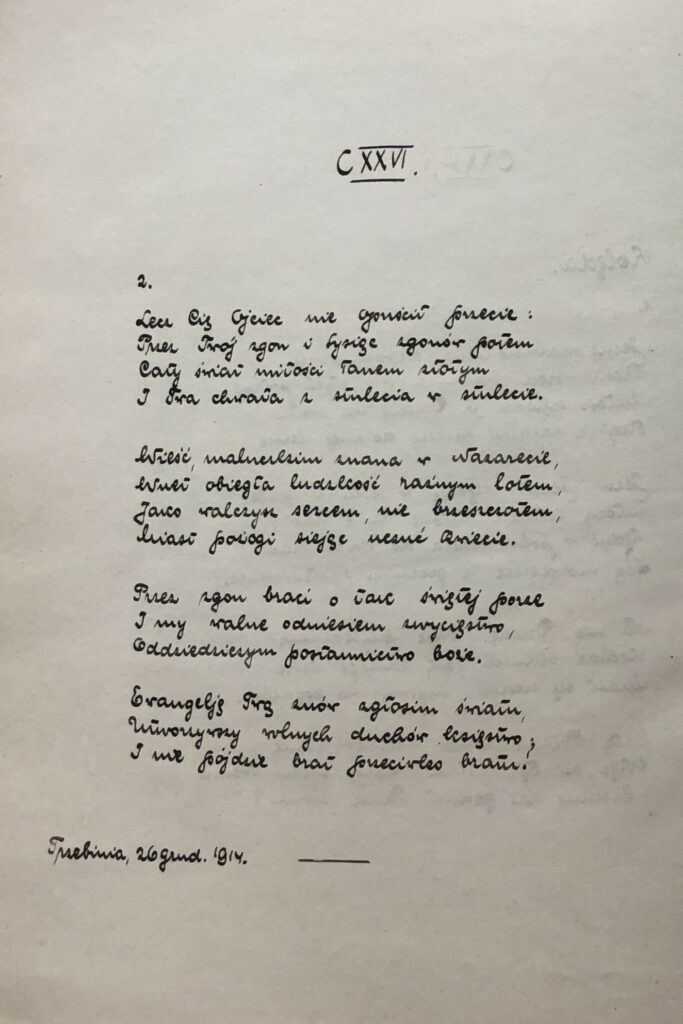 CXXVI.
2.
Lecz Cię Ojciec nie opuścił przecie:
Przez Twój zgon i tysiąc zgonów potem
Cały świat miłości łanem złotym
I Twa chwała z stulecia w stulecie.
Wieść, maluczkim znana w Nazarecie,
Wnet obiegła ludzkość raźnym lotem,
Jako walczysz sercem, nie brzeszczotem,
Miast pożogi siejąc uczuć kwiecie.
Przez zgon braci o tak świętej porze
I my walne odniesiem zwycięstwo,
Oddziedziczym posłannictwo boże.
Ewangelję Twą znów zgłosim światu,
Utworzywszy wolnych duchów księstwo;
I nie pójdzie brat przeciwko bratu!
Trzebinia, 26 grud. 1914.
Kolęda.